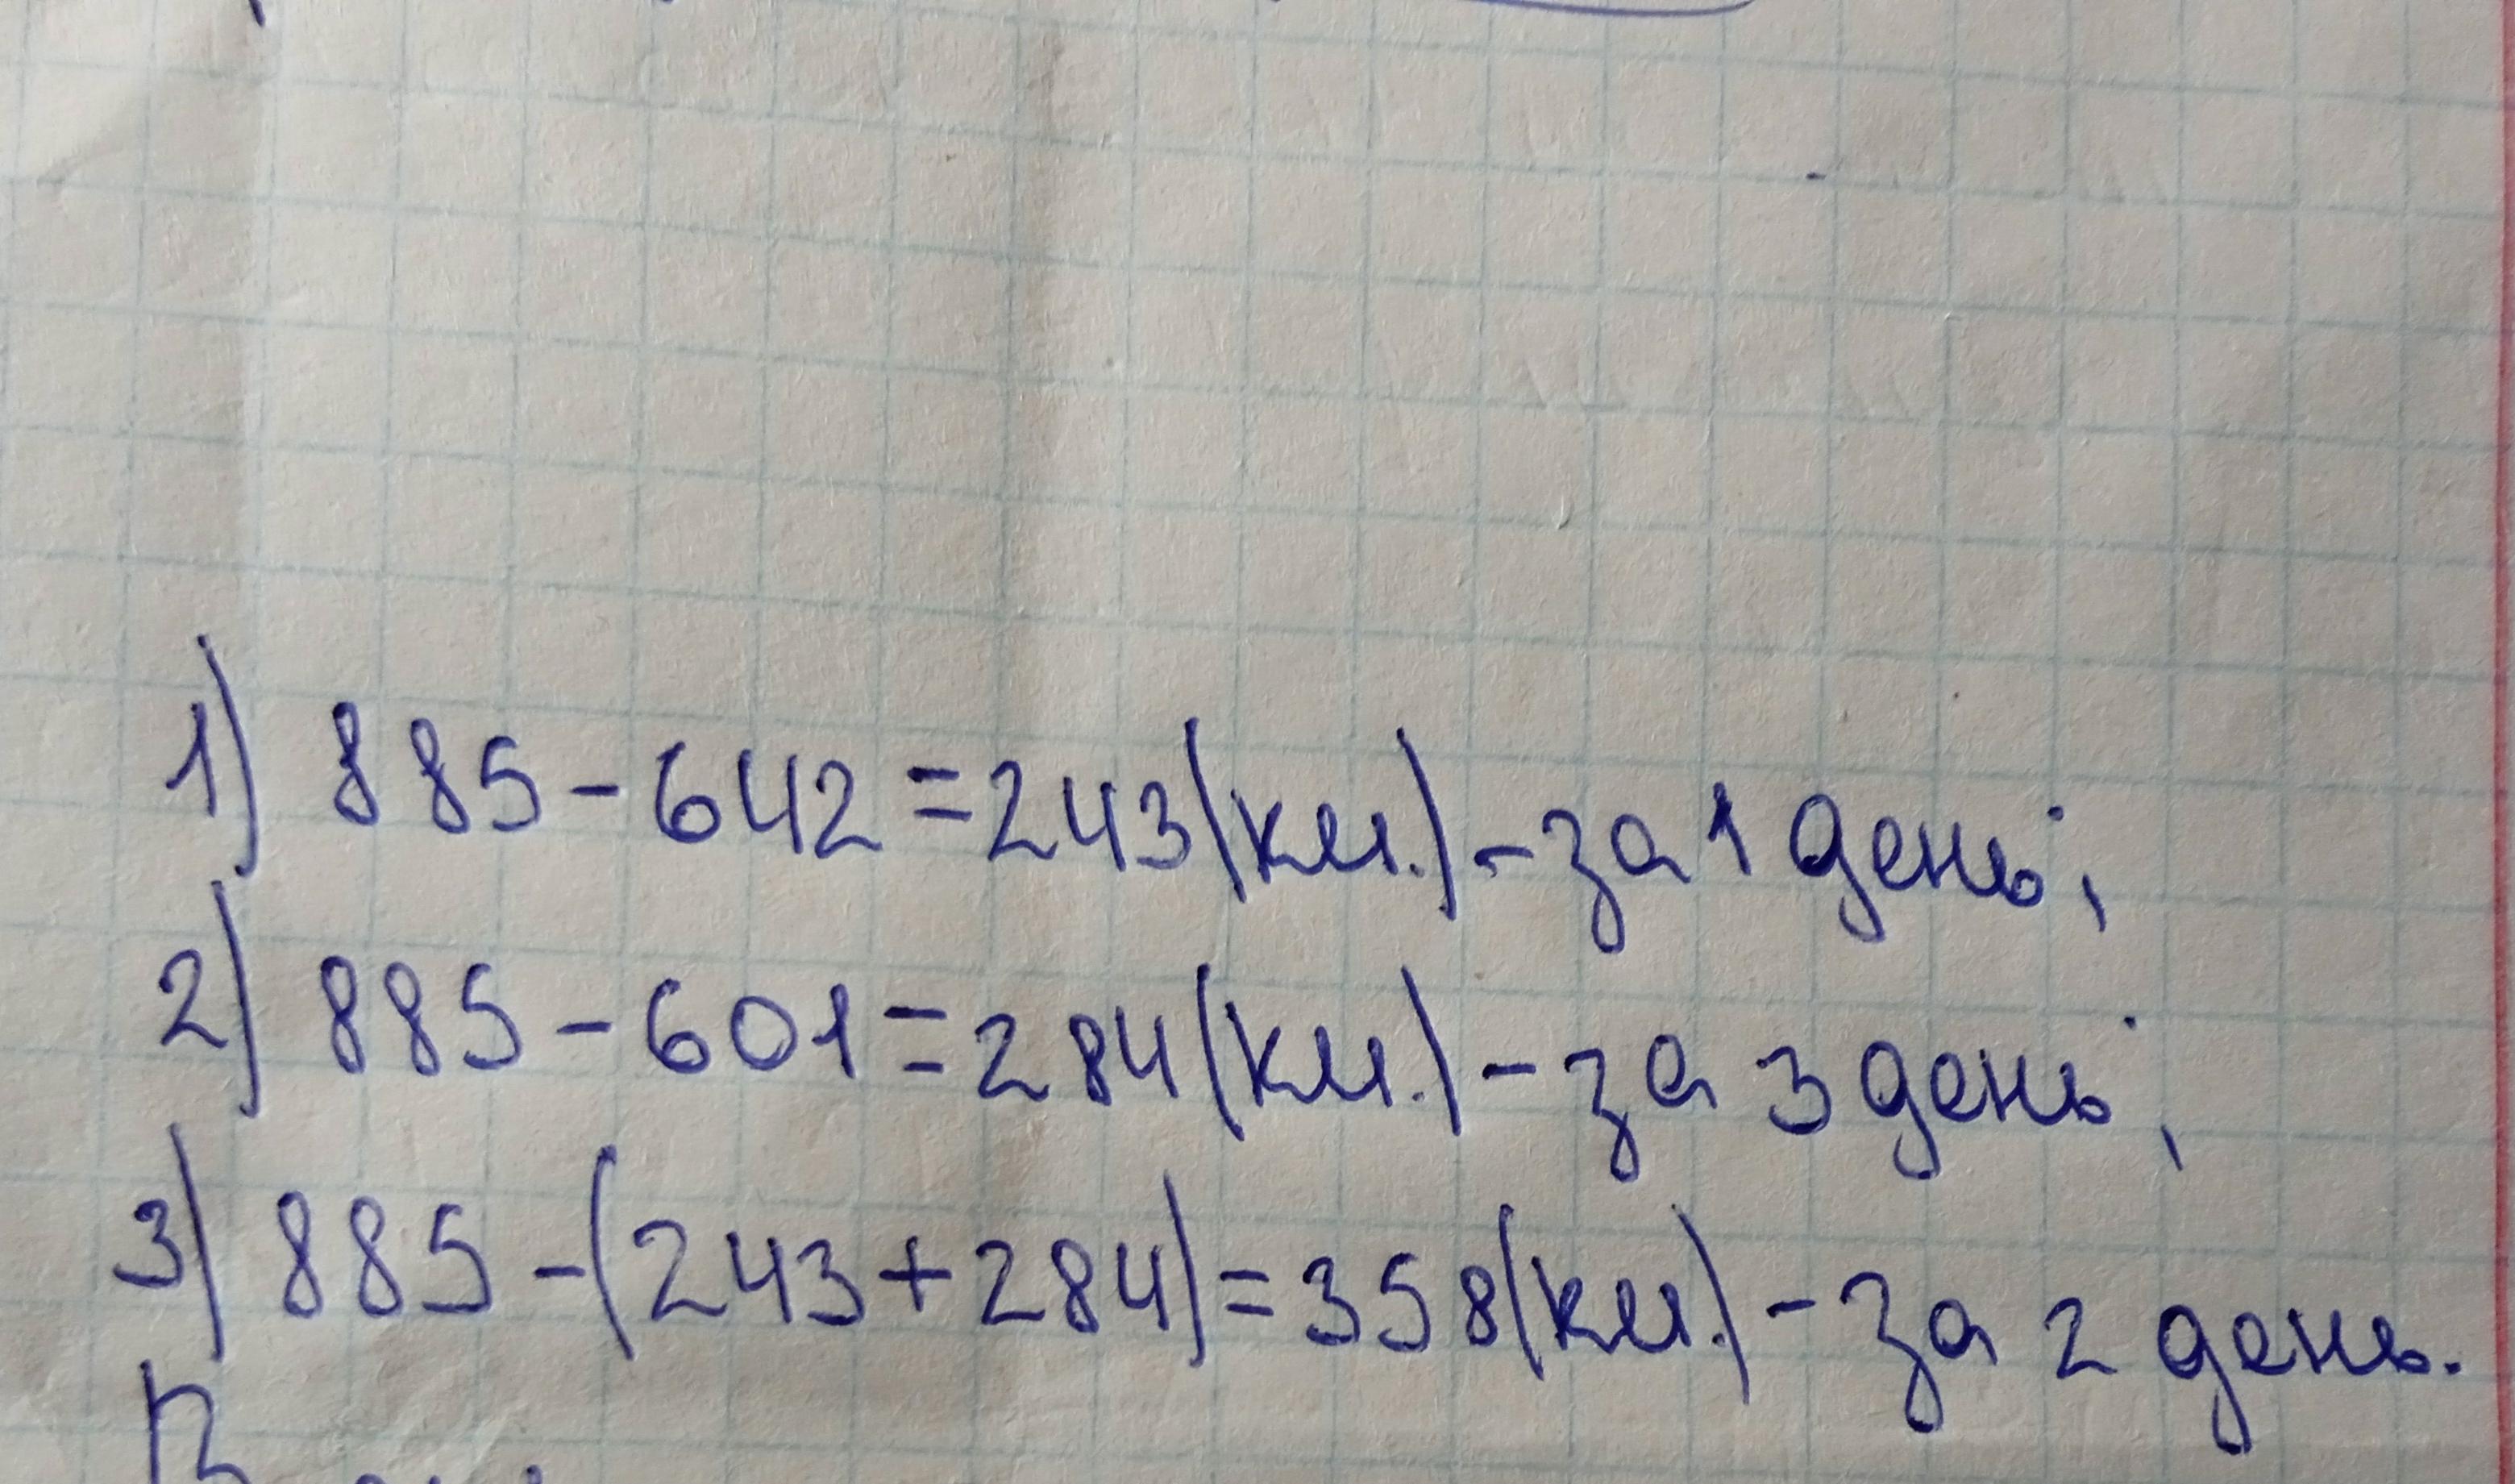 1) 885-642=243(км.)-за 1 день;
2) 885-601=284(км.)-за 3 день;
3) 885-(243+284)=358(км.)-за 2 день.